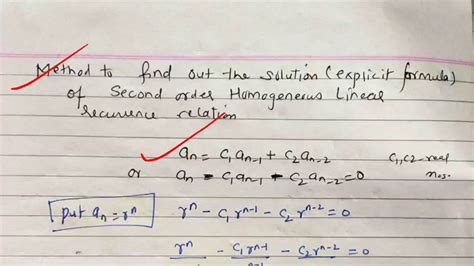 Method to find out the solution (explicit formula)
of Second order Homogeneous Linear
recurrence relation
aₙ = c₁aₙ₋₁ + c₂aₙ₋₂ c₁,c₂-real
or aₙ - c₁aₙ₋₁ - c₂aₙ₋₂=0 nos.
put aₙ=rⁿ rⁿ - c₁rⁿ⁻¹ - c₂rⁿ⁻²=0
rⁿ - c₁rⁿ⁻¹ - c₂rⁿ⁻² = 0